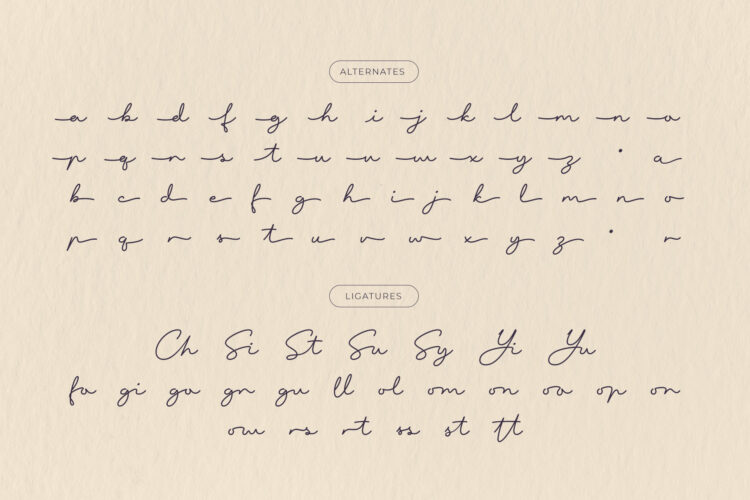 ALTERNATES
a b d f g h i j k l m n o
p q r s t u v w x y z • a
b c d e f g h i j k l m n o
p q r s t u v w x y z • r
LIGATURES
Ch Si St Su Sy Yi Yu
fo gi go gr gu ll ol om on oo op or
ow rs rt ss st tt